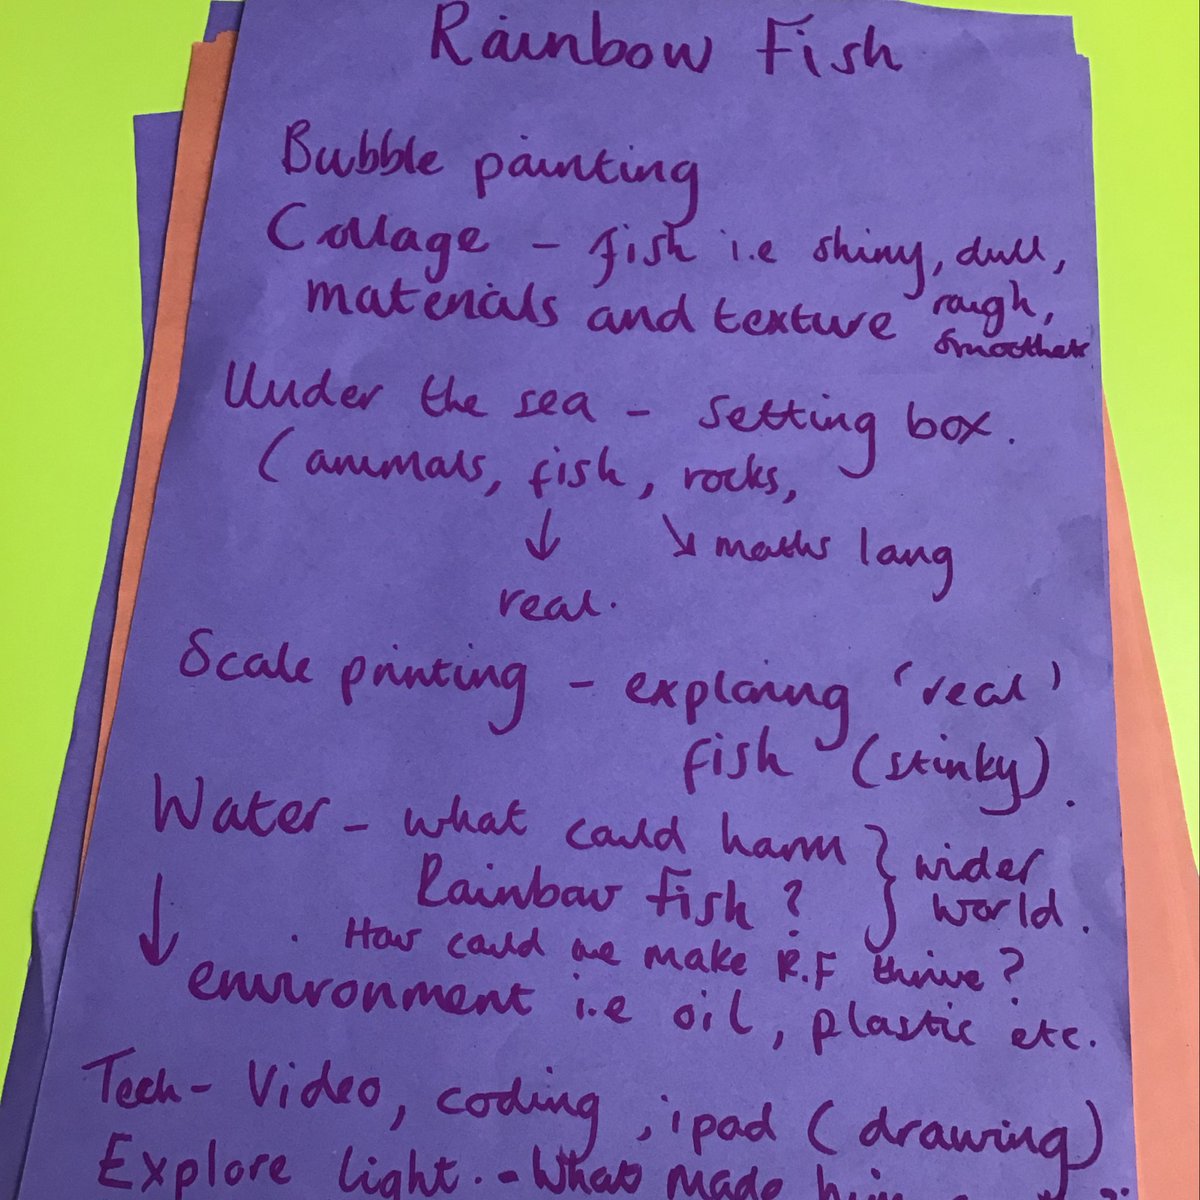 Rainbow Fish
Bubble painting
Collage - fish i.e shiny, dull,
materials and texture rough,
smoother
Under the sea - setting box.
(animals, fish, rocks,
↓ ↘ maths lang
real.
Scale printing - exploring 'real'
fish (stinky).
Water - what could harm } wider
Rainbow Fish? } world.
How could we make R.F thrive?
↓ environment i.e oil, plastic etc.
Tech - Video, coding, ipad (drawing)
Explore light. - What made him